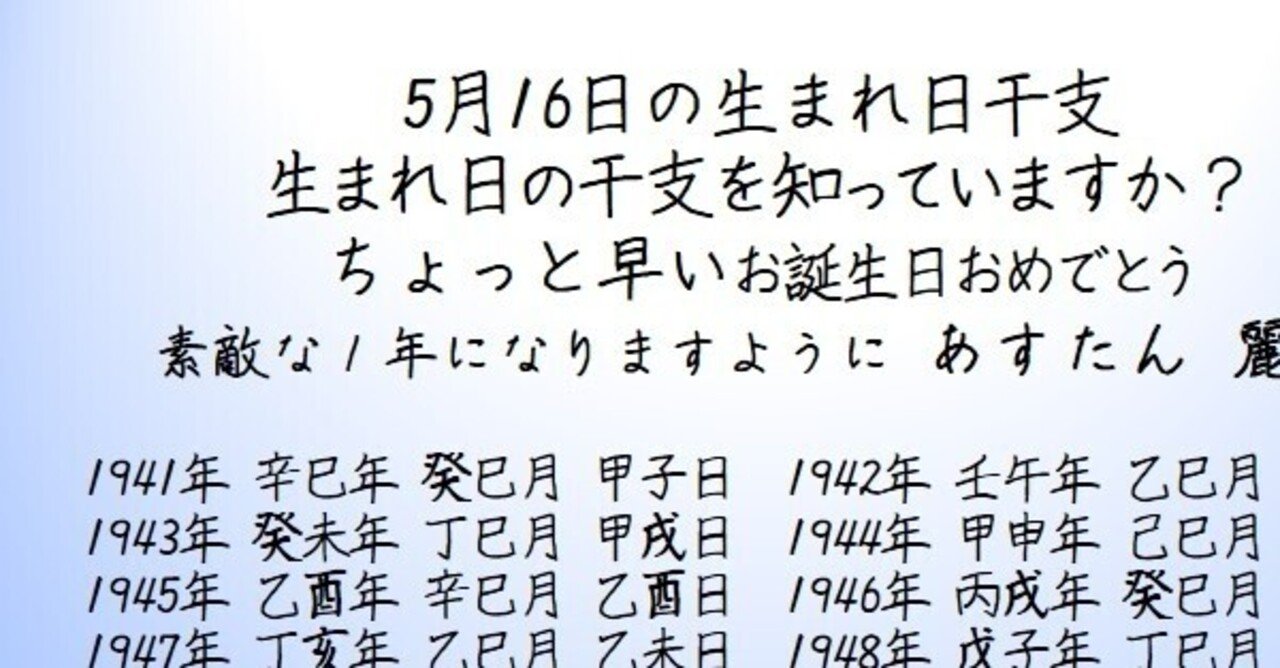 5月16日の生まれ日干支
生まれ日の干支を知っていますか？
ちょっと早いお誕生日おめでとう
素敵な1年になりますように あすたん 麗
1941年 辛巳年 癸巳月 甲子日 1942年 壬午年 乙巳月
1943年 癸未年 丁巳月 甲戌日 1944年 甲申年 己巳月
1945年 乙酉年 辛巳月 乙酉日 1946年 丙戌年 癸巳月
1947年 丁亥年 乙巳月 乙未日 1948年 戊子年 丁巳月